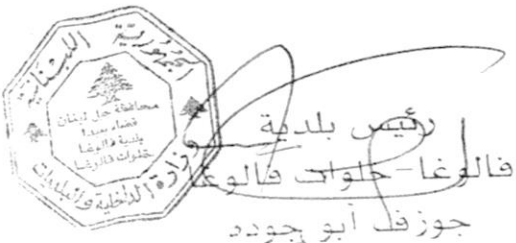 الجمهورية اللبنانية
محافظة جبل لبنان
قضاء بعبدا
بلدية فالوغا
خلوات فالوغا
وزارة الداخلية والبلديات
رئيس بلدية
فالوغا - خلوات فالوغا
جوزف أبو جوده